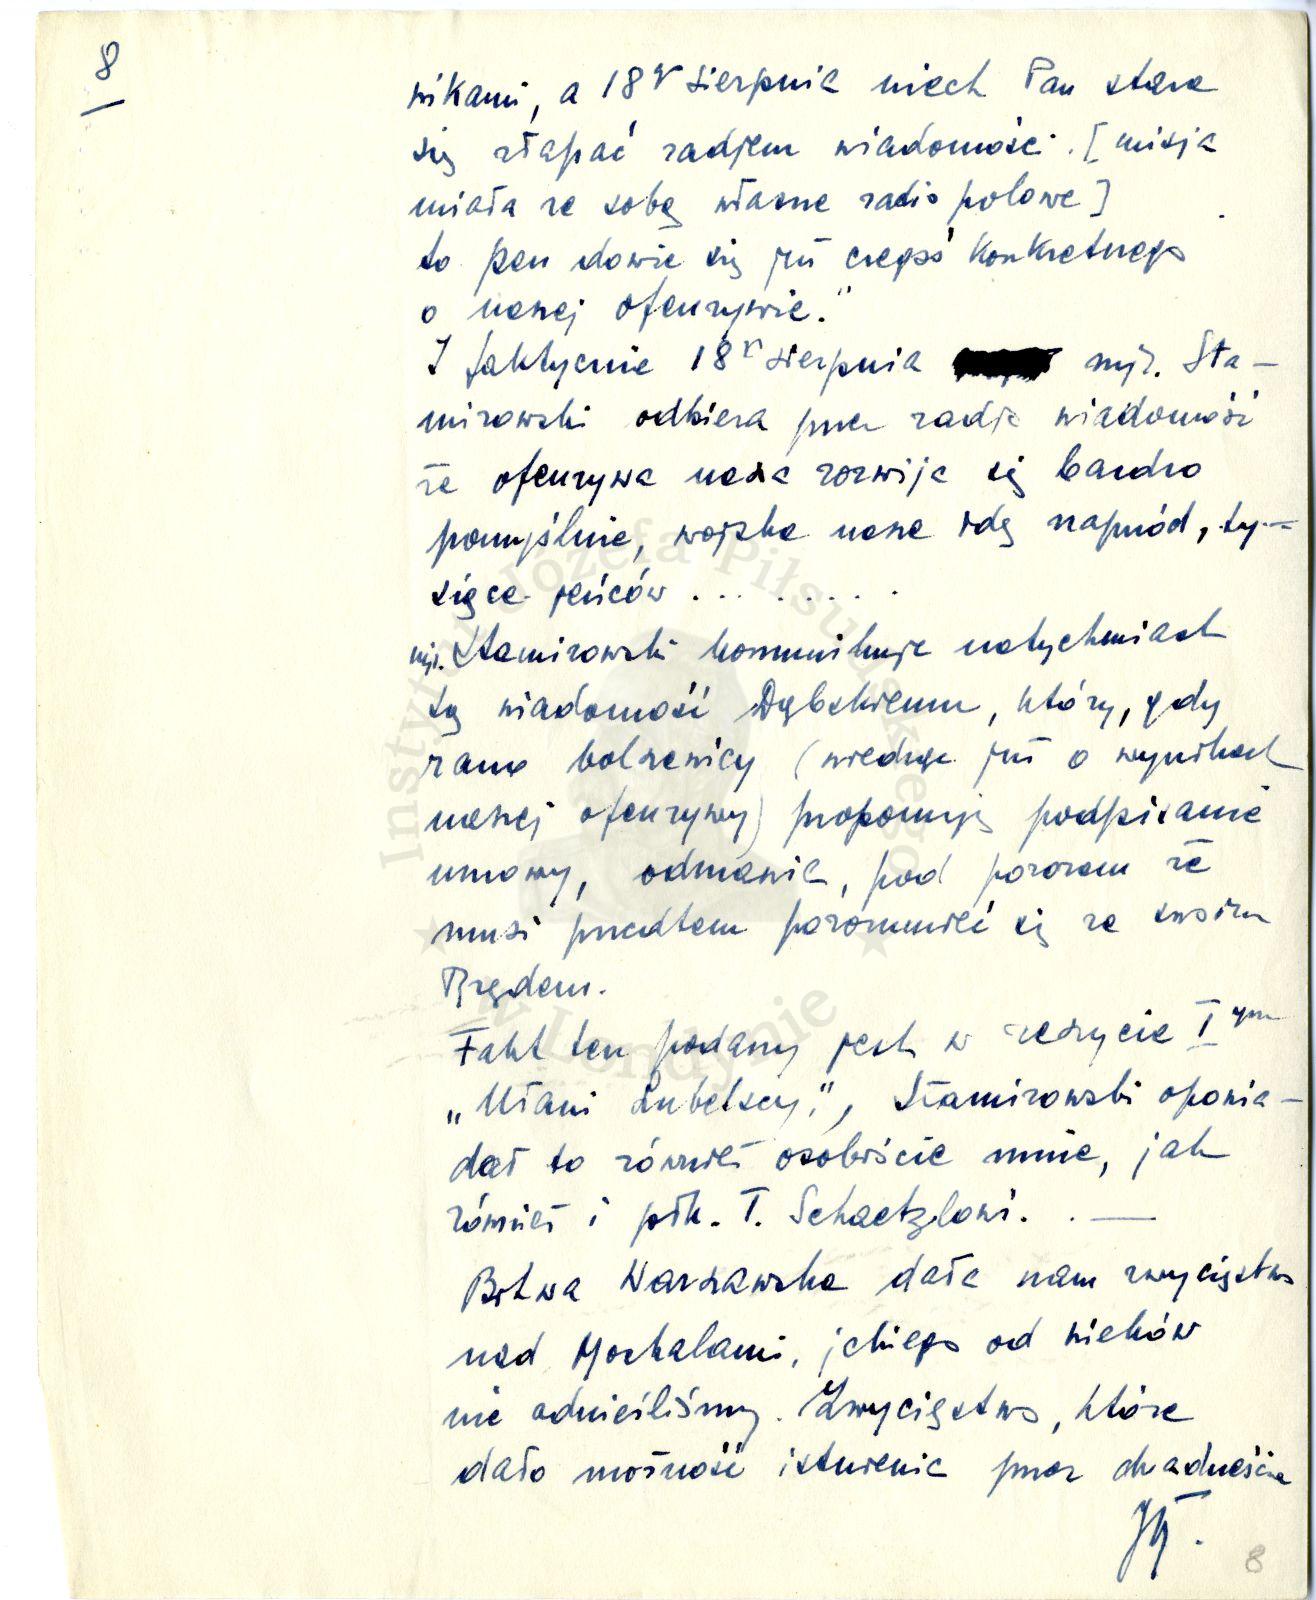 8
wikami, a 18go sierpnia niech Pan stara
się złapać radjem wiadomości. [misja
miała ze sobą własne radio polowe]
to pan dowie się już czegoś konkretnego
o naszej ofenzywie."
I faktycznie 18go sierpnia mjr. Sta-
mirowski odbiera przez radjo wiadomość
że ofenzywa nasza rozwija się bardzo
pomyślnie, wojska nasze idą naprzód, ty-
siące jeńców . . . . . . . . .
mjr. Stamirowski komunikuje natychmiast
tę wiadomość Dąbskiemu, który, gdy
rano bolszewicy (wiedząc już o wynikach
naszej ofenzywy) proponują podpisanie
umowy, odmawia, pod pozorem że
musi przedtem porozumieć się ze swoim
Rządem.
Fakt ten podany jest w zeszycie Iym
„Ułani Lubelscy", Stamirowski opowia-
dał to również osobiście mnie, jak
również i płk. T. Schaetzlowi. . —
Bitwa Warszawska dała nam zwycięstwo
nad Moskalami, jakiego od wieków
nie odnieśliśmy. Zwycięstwo, które
dało możność istnienia przez dwadzieścia
8
Instytut Józefa Piłsudskiego
w Londynie